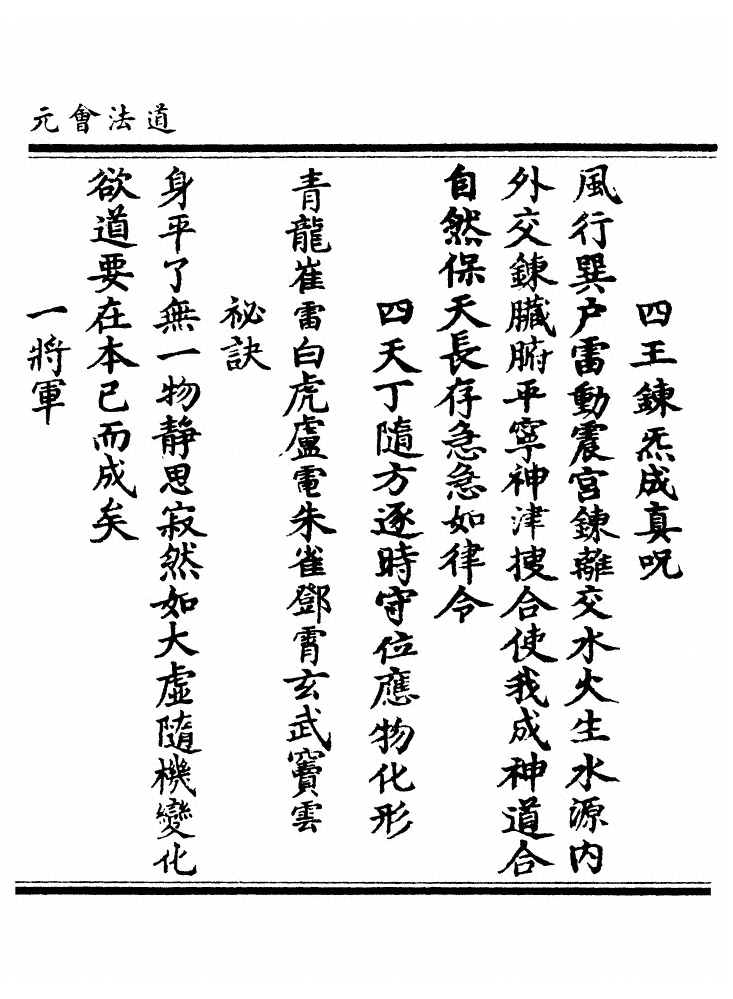 道法會元
四王鍊炁成真呪
風行巽户雷動震宮鍊離交水火生水源內
外交鍊臟腑平寧神津搜合使我成神道合
自然保天長存急急如律令
四天丁隨方逐時守位應物化形
青龍崔雷白虎盧電朱雀鄧霄玄武竇雲
祕訣
身平了無一物靜思寂然如大虛隨機變化
欲道要在本已而成矣
一將軍